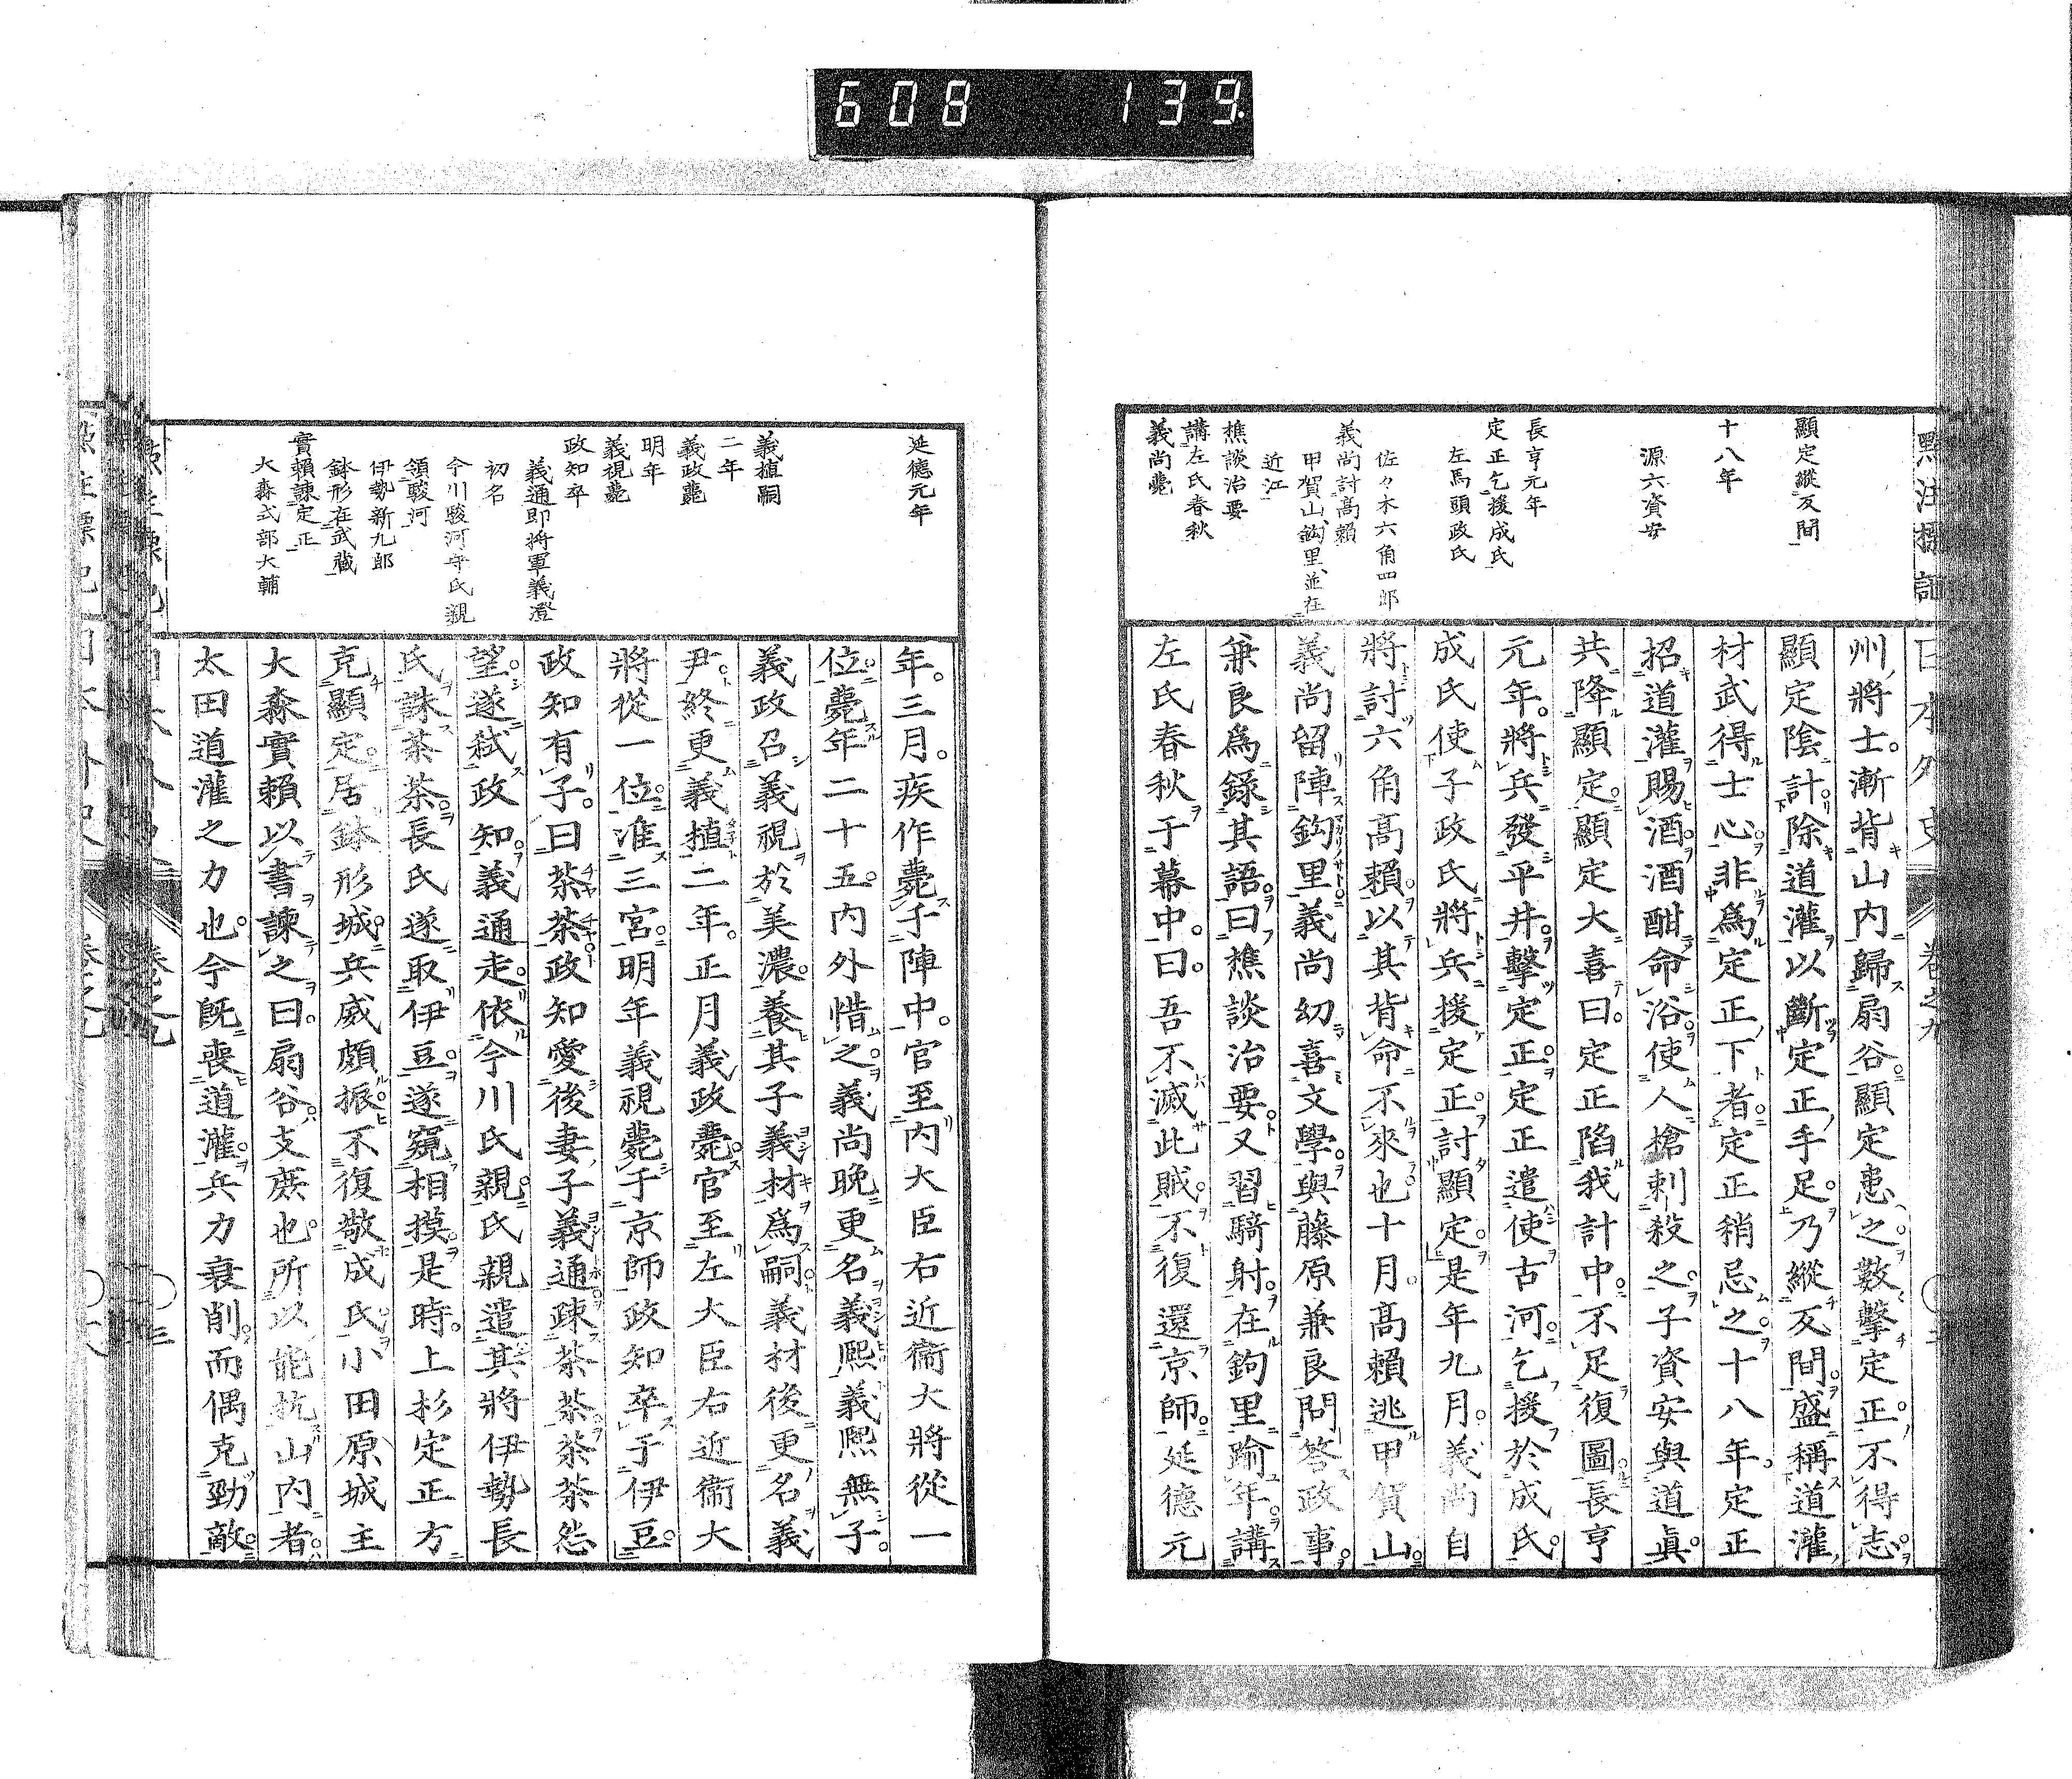 608 139.
顯定縱反間
十八年
源六資安
長亨元年
定正乞援成氏
左馬頭政氏
佐々木六角四郎
義尚討高賴
甲賀山、鈎里、並在
近江
樵談治要
講左氏春秋
義尚薨
州、將士。漸背山内歸扇谷。顯定患之。數擊定正。不得志。
顯定陰計除道灌以斷定正手足。乃縱反間。盛稱道灌
材武得士心。非爲定正下者。定正稍忌之。十八年。定正
招道灌賜酒。酒酣命浴。使人搶刺殺之。子資安與道眞。
共降顯定。顯定大喜曰。定正陷我計中。不足復圖。長亨
元年。將兵發平井。擊定正。定正遣使古河。乞援於成氏。
成氏使子政氏將兵援定正。討顯定。是年九月。義尚自
將討六角高賴。以其背命不來也。十月。高賴逃甲賀山。
義尚留陣鈎里。義尚幼喜文學。與藤原兼良問答政事。
兼良爲錄其語。曰樵談治要。又習騎射。在鉤里踰年。講
左氏春秋于幕中。曰。吾不滅此賊。不復還京師。延德元
延德元年
義植嗣
二年
義政薨
明年
義視薨
政知卒
義通即將軍義澄
初名
今川駿河守氏親
領駿河
伊勢新九郎
鉢形在武藏
實賴諫定正
大森式部大輔
年。三月。疾作薨于陣中。官至内大臣右近衞大將從一
位。薨年二十五。内外惜之。義尚晩更名義熙。義熙無子。
義政召義視於美濃。養其子義材爲嗣。義材後更名義
尹。終更義植。二年。正月義政薨。官至左大臣右近衞大
將從一位。准三宮。明年義視薨于京師。政知卒于伊豆。
政知有子。曰茶茶。政知愛後妻子義通。疎茶茶。茶茶怨
望。遂弑政知。義通走。依今川氏親。氏親遣其將伊勢長
氏誅茶茶。長氏遂取伊豆。遂窺相摸。是時。上杉定正方
克顯定。居鉢形城。兵威頗振。不復敬成氏。小田原城主
大森實賴以書諫之曰。扇谷支庶也。所以能抗山内者。
太田道灌之力也。今既喪道灌。兵力衰削。而偶克勁敵。